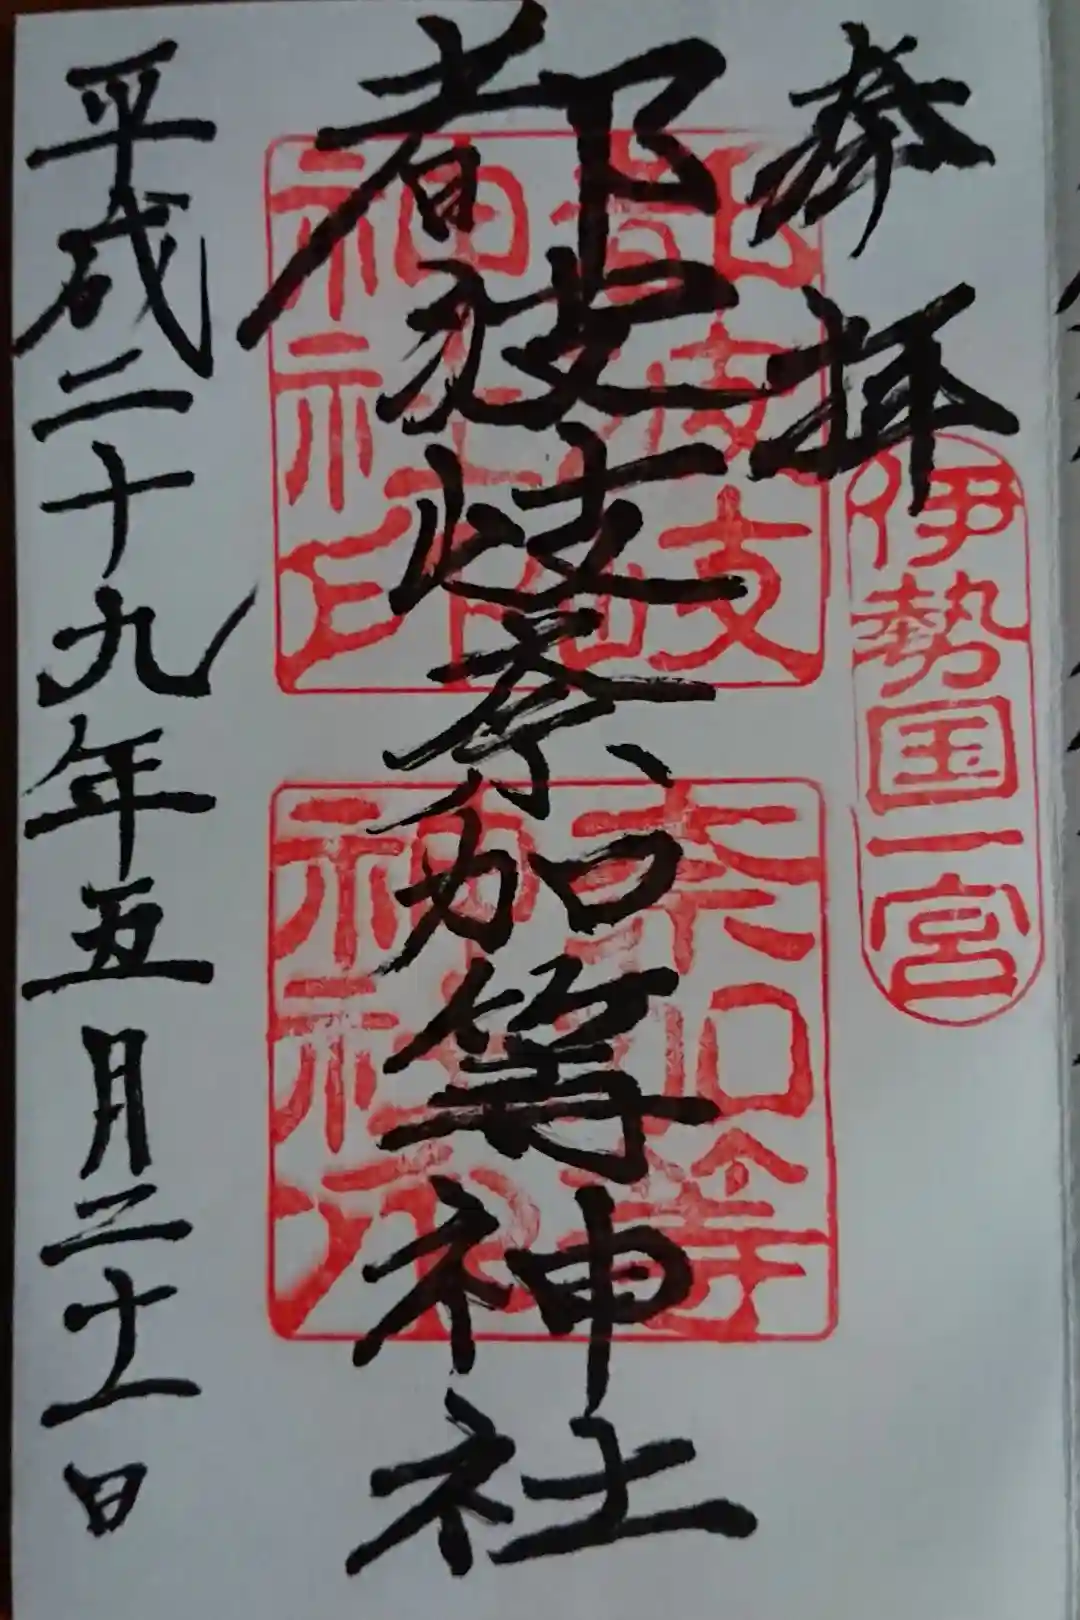 奉拝
伊勢国一宮
都波岐奈加等神社
都波岐
神社印
奈加等
神社印
平成二十九年五月二十一日